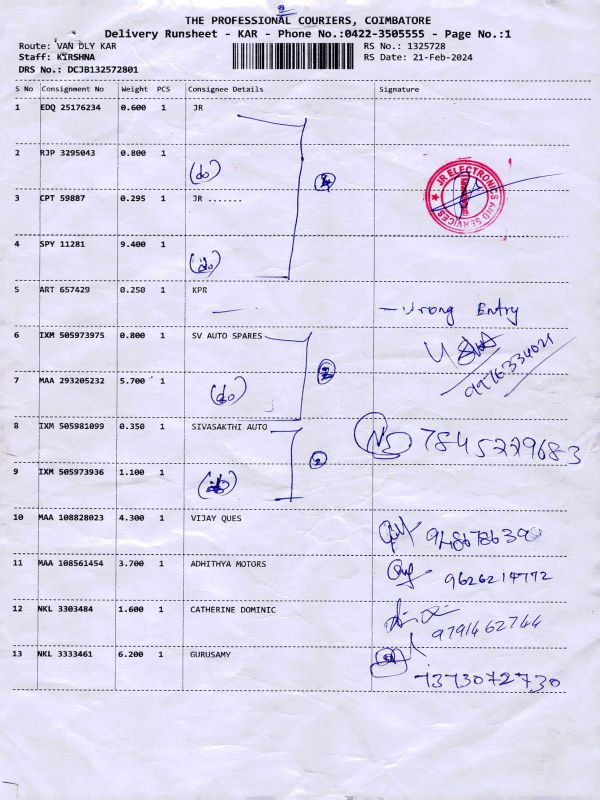 THE PROFESSIONAL COURIERS, COIMBATORE
Delivery Runsheet - KAR - Phone No.:0422-3505555 - Page No.:1
Route: VAN DLY KAR RS No.: 1325728
Staff: KIRSHNA RS Date: 21-Feb-2024
DRS No.: DCJB132572801
S No Consignment No Weight PCS Consignee Details Signature
1 EDQ 25176234 0.600 1 JR
2 RJP 3295043 0.800 1
(do)
JR ELECTRONICS AND SERVICES
3 CPT 59887 0.295 1 JR .......
4 SPY 11281 9.400 1
(do)
5 ART 657429 0.250 1 KPR
- wrong Entry
6 IXM 505973975 0.800 1 SV AUTO SPARES
9976334021
7 MAA 293205232 5.700 1
(do) 2
8 IXM 505981099 0.350 1 SIVASAKTHI AUTO
NS 7845229683
9 IXM 505973936 1.100 1
2
10 MAA 108828023 4.300 1 VIJAY QUES
11 MAA 108561454 3.700 1 ADHITHYA MOTORS
9626214772
12 NKL 3303484 1.600 1 CATHERINE DOMINIC
9791462744
13 NKL 3333461 6.200 1 GURUSAMY
7373072730